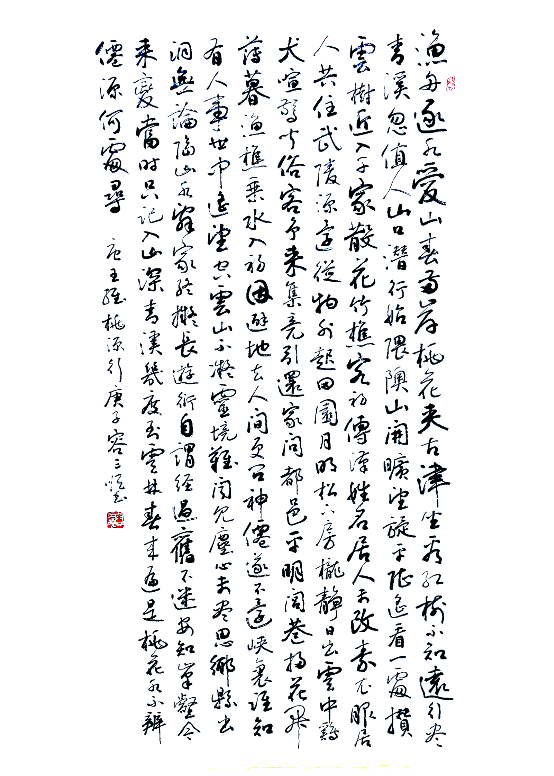 漁舟逐水愛山春兩岸桃花夾古津坐看紅樹不知遠行盡
青溪忽值人山口潛行始隈隩山開曠望旋平陸遙看一處攢
雲樹近入千家散花竹樵客初傳漢姓名居人未改秦衣服居
人共住武陵源還從物外起田園月明松下房櫳靜日出雲中雞
犬喧驚聞俗客爭來集競引還家問都邑平明閭巷掃花開
薄暮漁樵乘水入初因避地去人間更問神僊遂不還峽裏誰知
有人事世中遙望空雲山不疑靈境難聞見塵心未盡思鄉縣出
洞無論隔山水辭家終擬長遊衍自謂經過舊不迷安知峯壑今
來變當時只記入山深青溪幾度到雲林春來遍是桃花水不辨
僊源何處尋 唐王維桃源行庚子容三